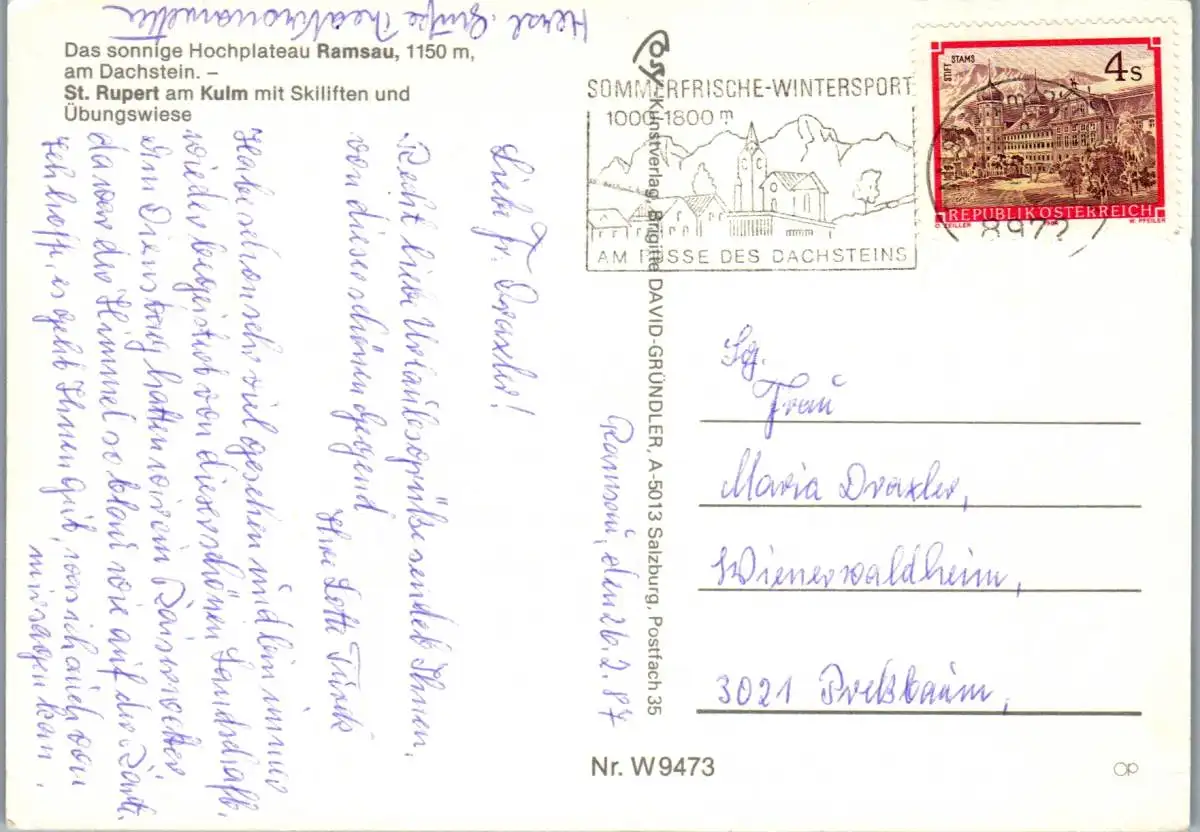 Das sonnige Hochplateau Ramsau, 1150 m,
am Dachstein. –
St. Rupert am Kulm mit Skiliften und
Übungswiese
Liebe Fr. Draxler!
Recht liebe Urlaubsgrüße sendet Ihnen,
von dieser schönen Gegend
Ihre Lotte
Habe schon sehr viel gesehen und bin immer
wieder begeistert von dieser schönen Landschaft.
Am Dienstag hatten wir ein Kaiserwetter,
da war der Himmel so blau wie auf der Karte.
Ich hoffe, es geht Ihnen gut, was ich auch von
mir sagen kan.
Herzl. Grüße
Ramsau, den 26.2.87
Cosy
Kunstverlag, Brigitte DAVID-GRÜNDLER, A-5013 Salzburg, Postfach 35
SOMMERFRISCHE-WINTERSPORT
1000-1800 m
AM FUSSE DES DACHSTEINS
8972
STIFT STAMS
4 S
REPUBLIK ÖSTERREICH
O. ZEILLER 1984 W. PFEILER
Sg.
Frau
Maria Draxler,
Wienerwaldheim,
3021 Preßbaum,
Nr. W9473
OP